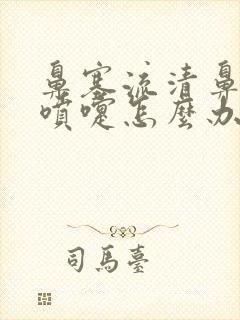 鼻塞流清鼻
噴嚏怎麼办
司馬臺